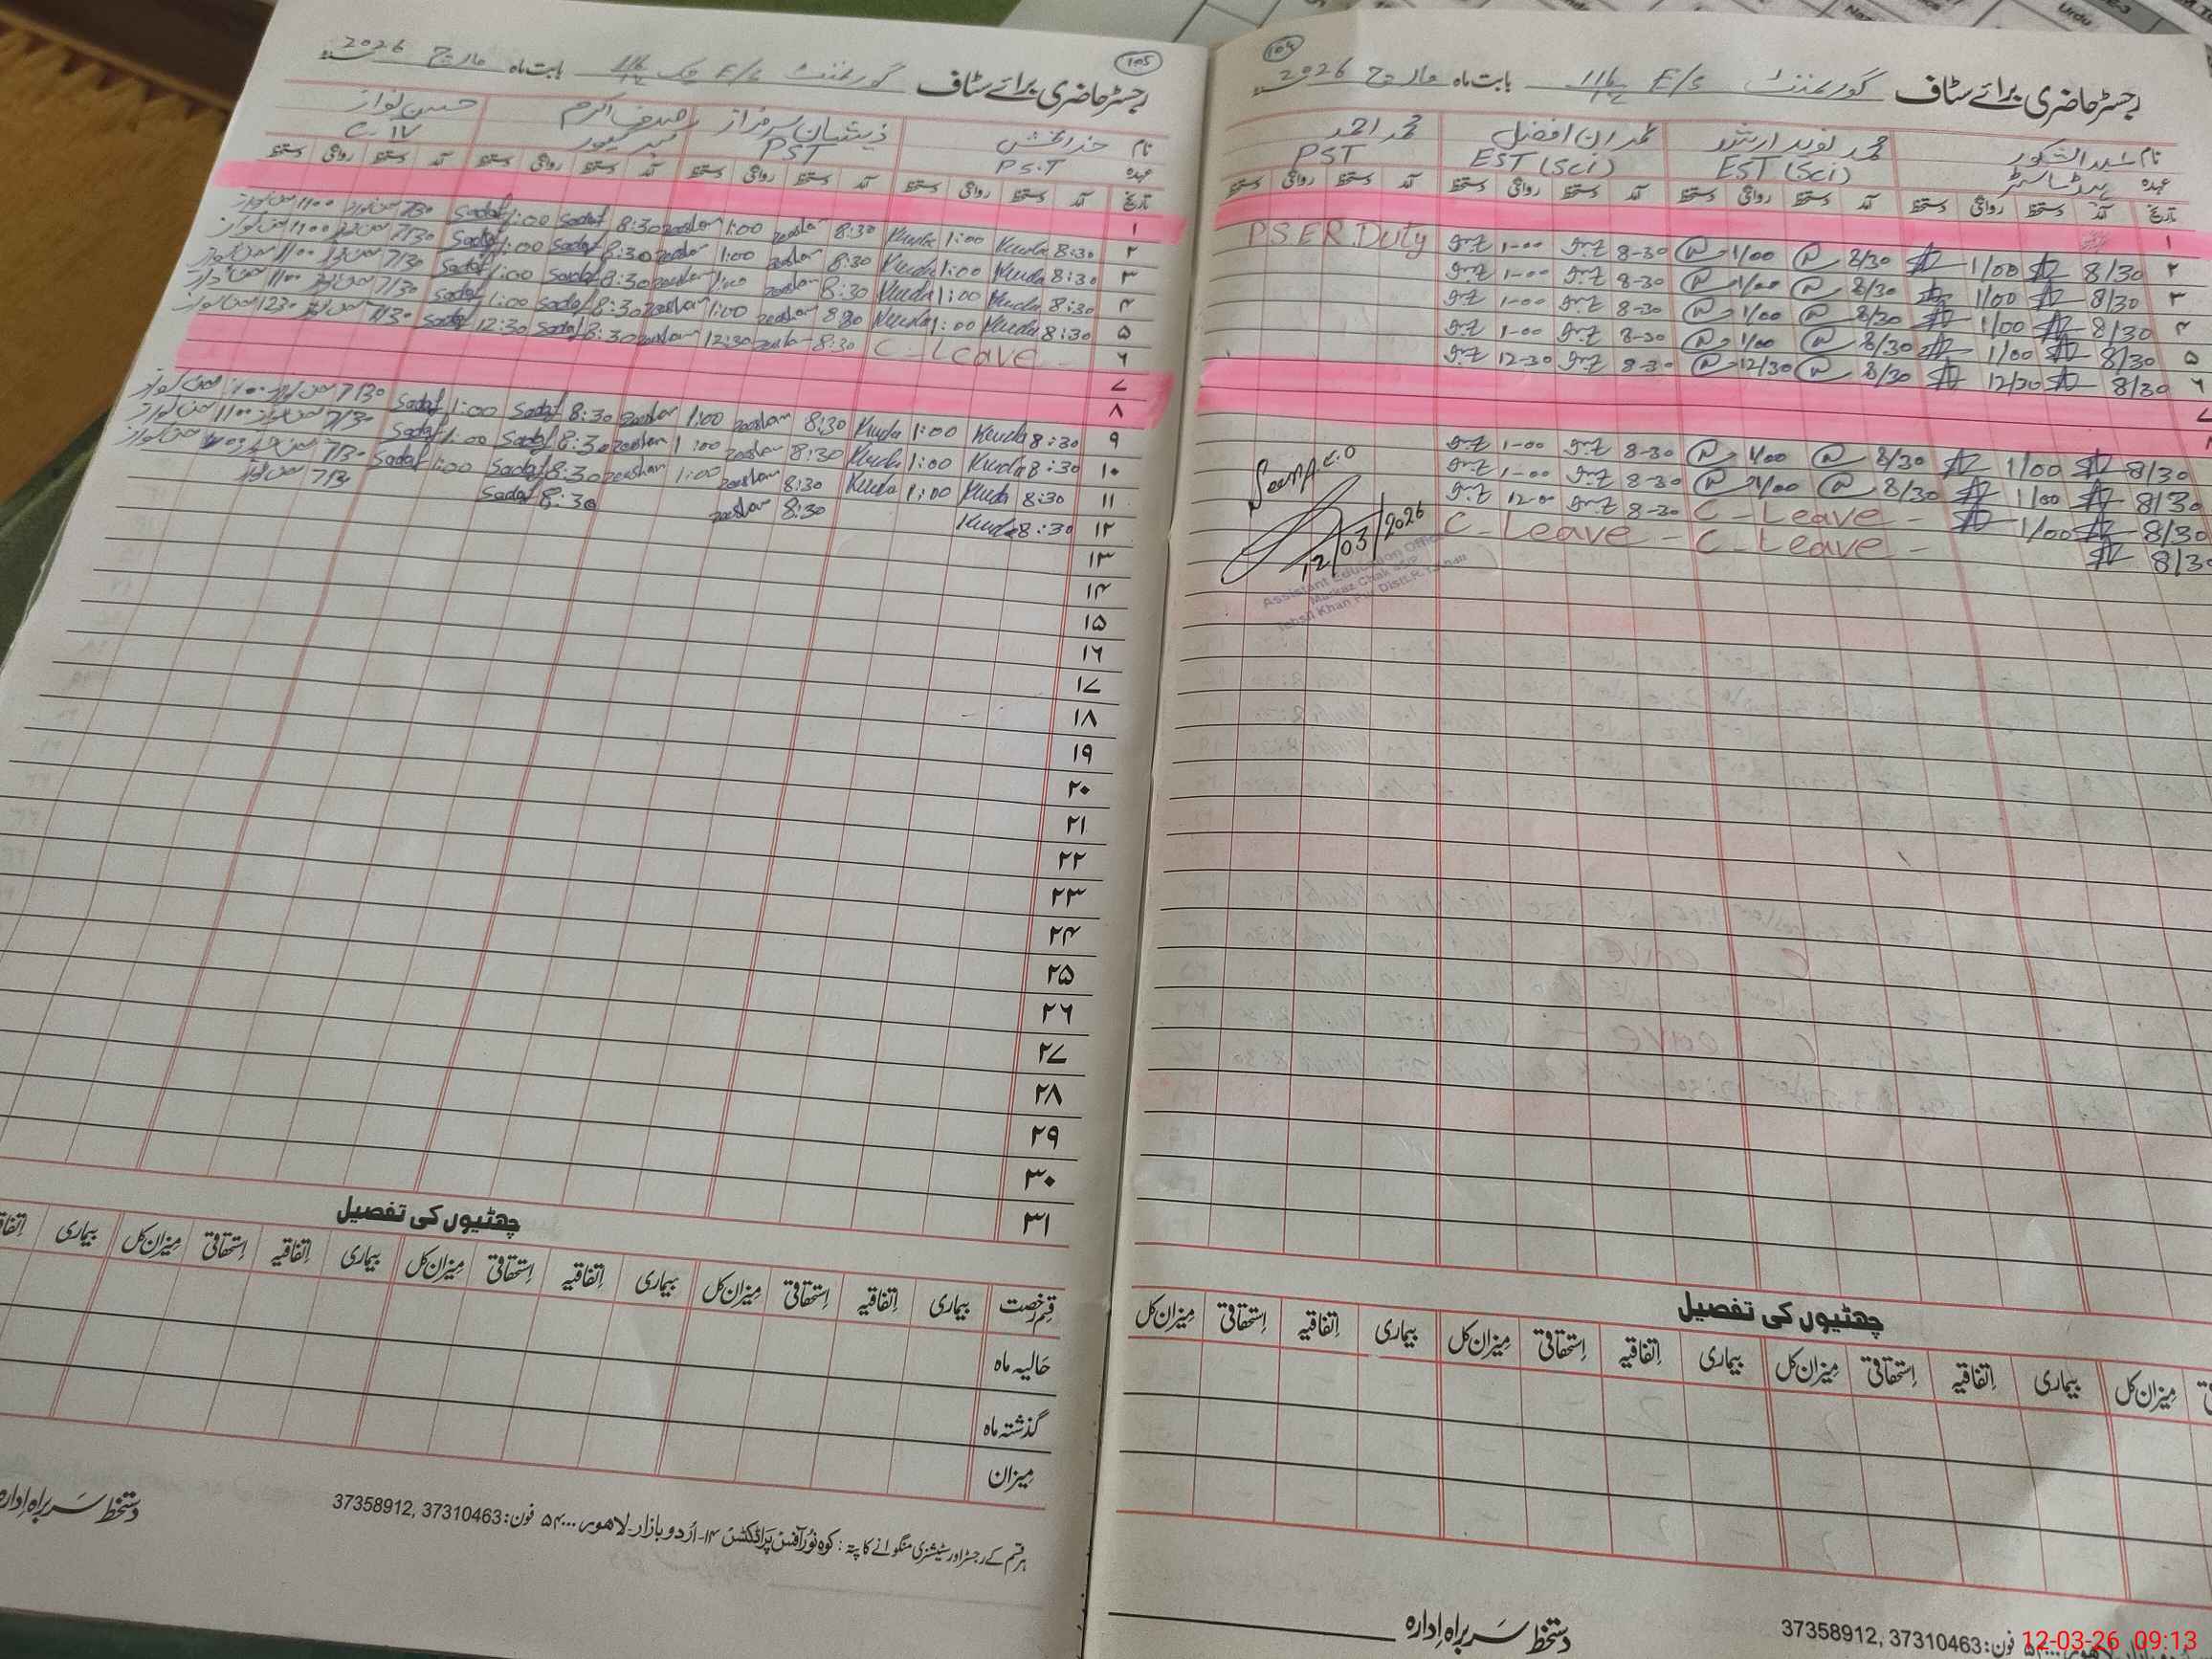 رجسٹر حاضری برائے سٹاف گورنمنٹ E/S 116/12L بابت ماہ مارچ 2026
104
نام عہدہ
محمد نوید ارشد EST (Sci)
عمران افضل EST (Sci)
محمد احمد PST
تاریخ آمد دستخط روانگی دستخط آمد دستخط روانگی دستخط آمد دستخط روانگی دستخط آمد دستخط روانگی دستخط
۱
۲ 8/30 1/00 8/30 1/00 8-30 1-00 P.S.E.R. Duty
۳ 8/30 1/00 8/30 1/00 8-30 1-00
۴ 8/30 1/00 8/30 1/00 8-30 1-00
۵ 8/30 1/00 8/30 1/00 8-30 1-00
۶ 8/30 12/30 8/30 12/30 8-30 12-30
۷
8/30 1/00 8/30 1/00 8-30 1-00
8/30 1/00 8/30 1/00 8-30 1-00
8/30 1/00 C-Leave - 8-30 12-00
8/30 C-Leave - C-Leave -
Seen
12/03/2026
Assistant Education Officer
Markaz Chak
Tehsil Khan Pur Distt.R.Y.Khan
چھٹیوں کی تفصیل
میزان کل بیماری اتفاقیہ استحقاقی میزان کل بیماری اتفاقیہ استحقاقی میزان کل بیماری اتفاقیہ استحقاقی میزان کل
دستخط سربراہ ادارہ
فون: 37358912, 37310463
12-03-26 09:13
105
رجسٹر حاضری برائے سٹاف گورنمنٹ E/S چک 116/12L بابت ماہ مارچ 2026
نام خدا بخش ذیشان سرفراز صدف اکرم حسین نواز
عہدہ P.S.T PST C-IV
تاریخ آمد دستخط روانگی دستخط آمد دستخط روانگی دستخط آمد دستخط روانگی دستخط آمد دستخط روانگی دستخط
۱
۲ 8:30 Kuda 1:00 Kuda 8:30 zeeshan 1:00 zeeshan 8:30 Sadaf 1:00 Sadaf 7/30 حسین نواز 1100 حسین نواز
۳ 8:30 Kuda 1:00 Kuda 8:30 zeeshan 1:00 zeeshan 8:30 Sadaf 1:00 Sadaf 7/30 حسین نواز 1100 حسین نواز
۴ 8:30 Kuda 1:00 Kuda 8:30 zeeshan 1:00 zeeshan 8:30 Sadaf 1:00 Sadaf 7/30 حسین نواز 1100 حسین نواز
۵ 8:30 Kuda 1:00 Kuda 8:30 zeeshan 1:00 zeeshan 8:30 Sadaf 1:00 Sadaf 7/30 حسین نواز 1100 حسین نواز
۶ C-Leave - 8:30 zeeshan 12:30 zeeshan 8:30 Sadaf 12:30 Sadaf 7/30 حسین نواز 1230 حسین نواز
۷
۸
۹ 8:30 Kuda 1:00 Kuda 8:30 zeeshan 1:00 zeeshan 8:30 Sadaf 1:00 Sadaf 7/30 حسین نواز 1100 حسین نواز
۱۰ 8:30 Kuda 1:00 Kuda 8:30 zeeshan 1:00 zeeshan 8:30 Sadaf 1:00 Sadaf 7/30 حسین نواز 1100 حسین نواز
۱۱ 8:30 Kuda 1:00 Kuda 8:30 zeeshan 1:00 zeeshan 8:30 Sadaf 1:00 Sadaf 7/30 حسین نواز حسین نواز
۱۲ 8:30 Kuda 8:30 zeeshan 8:30 Sadaf حسین نواز
۱۳
۱۴
۱۵
۱۶
۱۷
۱۸
۱۹
۲۰
۲۱
۲۲
۲۳
۲۴
۲۵
۲۶
۲۷
۲۸
۲۹
۳۰
۳۱
چھٹیوں کی تفصیل
قسم رخصت بیماری اتفاقیہ استحقاقی میزان کل بیماری اتفاقیہ استحقاقی میزان کل بیماری اتفاقیہ استحقاقی میزان کل بیماری
حالیہ ماہ
گذشتہ ماہ
میزان
ہر قسم کے رجسٹر اور سٹیشنری منگوانے کا پتہ: کوہ نور آفس پراڈکٹس ۱۴- اُردو بازار۔لاہور ۵۴۰۰۰ فون: 37358912, 37310463
دستخط سربراہ ادارہ